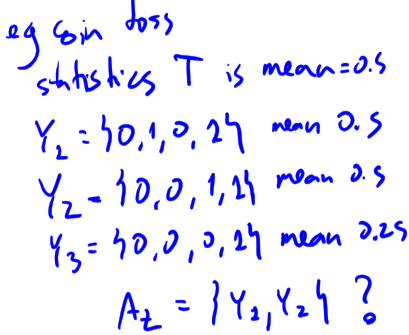 eg coin toss
statistics T is mean=0.5
Y₁ = {0,1,0,1} mean 0.5
Y₂ = {0,0,1,1} mean 0.5
Y₃ = {0,0,0,1} mean 0.25
A_t = {Y₁,Y₂} ?